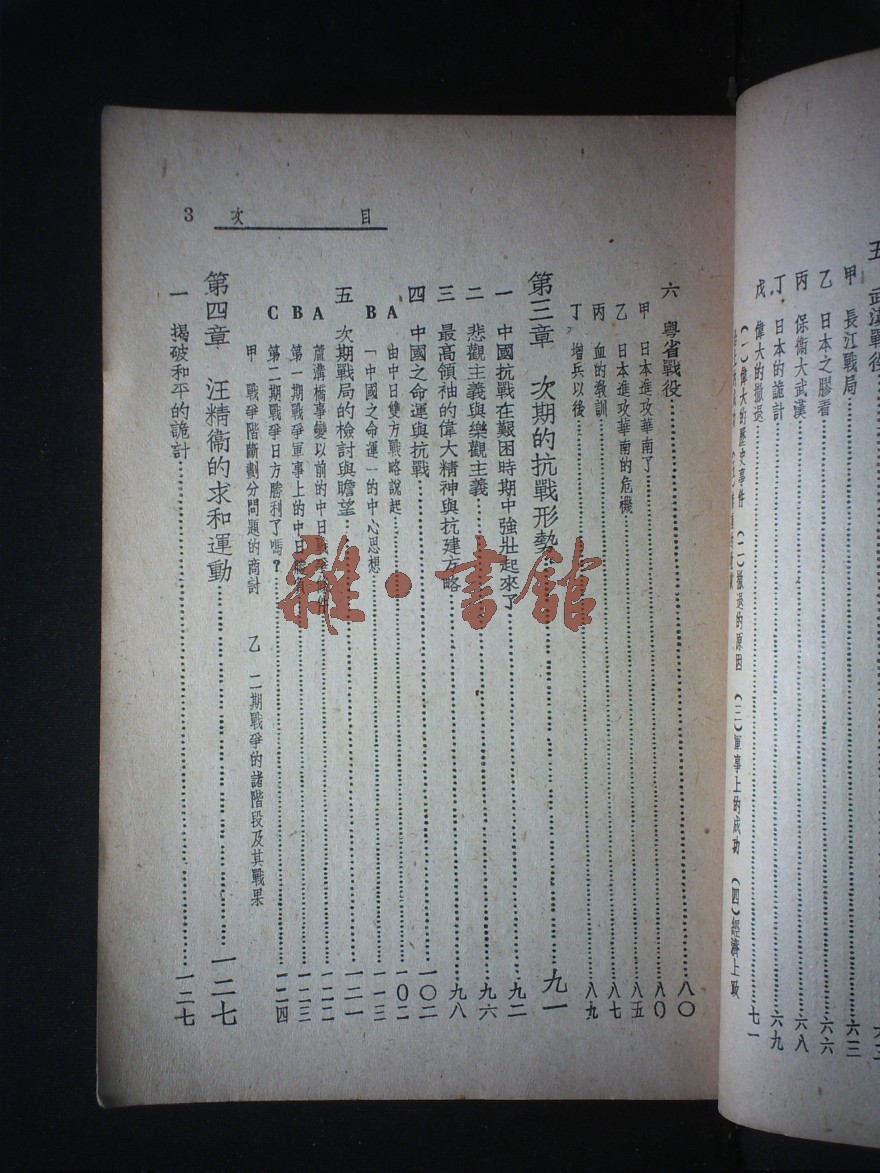 五 武漢戰役
甲 長江戰局 六三
乙 日本之膠着 六六
丙 保衞大武漢 六八
丁 日本的詭計 六九
戊 偉大的撤退 七一
(一)偉大的歷史事件 (二)撤退的原因 (三)軍事上的成功 (四)經濟上政
目次 3
六 粵省戰役 八〇
甲 日本進攻華南了 八〇
乙 日本進攻華南的危機 八五
丙 血的敎訓 八七
丁 增兵以後 八九
第三章 次期的抗戰形勢 九一
一 中國抗戰在艱困時期中強壯起來了 九二
二 悲觀主義與樂觀主義 九六
三 最高領袖的偉大精神與抗建方略 九八
四 中國之命運與抗戰 一〇二
A 由中日雙方戰略說起 一〇二
B 「中國之命運」的中心思想 一一三
五 次期戰局的檢討與瞻望 一二一
A 蘆溝橋事變以前的中日戰爭 一二二
B 第一期戰爭軍事上的中日 一二三
C 第二期戰爭日方勝利了嗎? 一二四
甲 戰爭階斷劃分問題的商討 乙 二期戰爭的諸階段及其戰果
第四章 汪精衞的求和運動 一二七
一 揭破和平的詭計 一二七
雜·書館